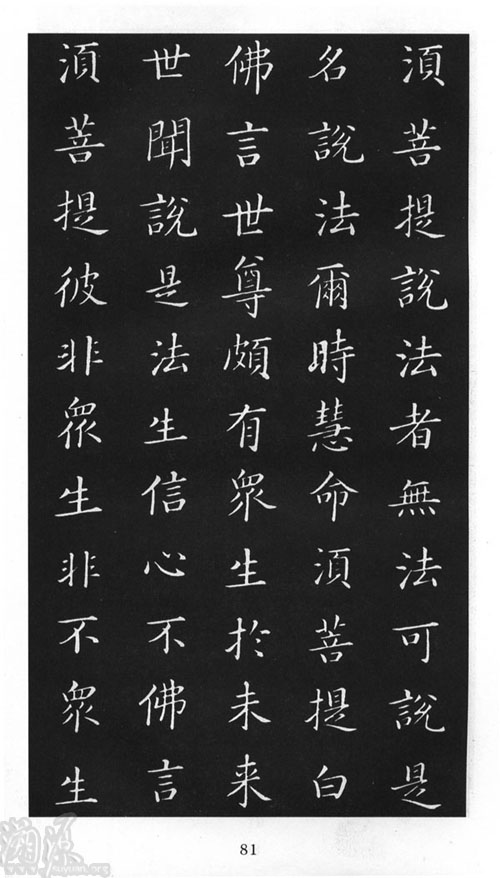 湏菩提說法者無法可說是
名說法爾時慧命湏菩提白
佛言世尊頗有衆生於未来
世聞說是法生信心不佛言
湏菩提彼非衆生非不衆生
81
yuan.org